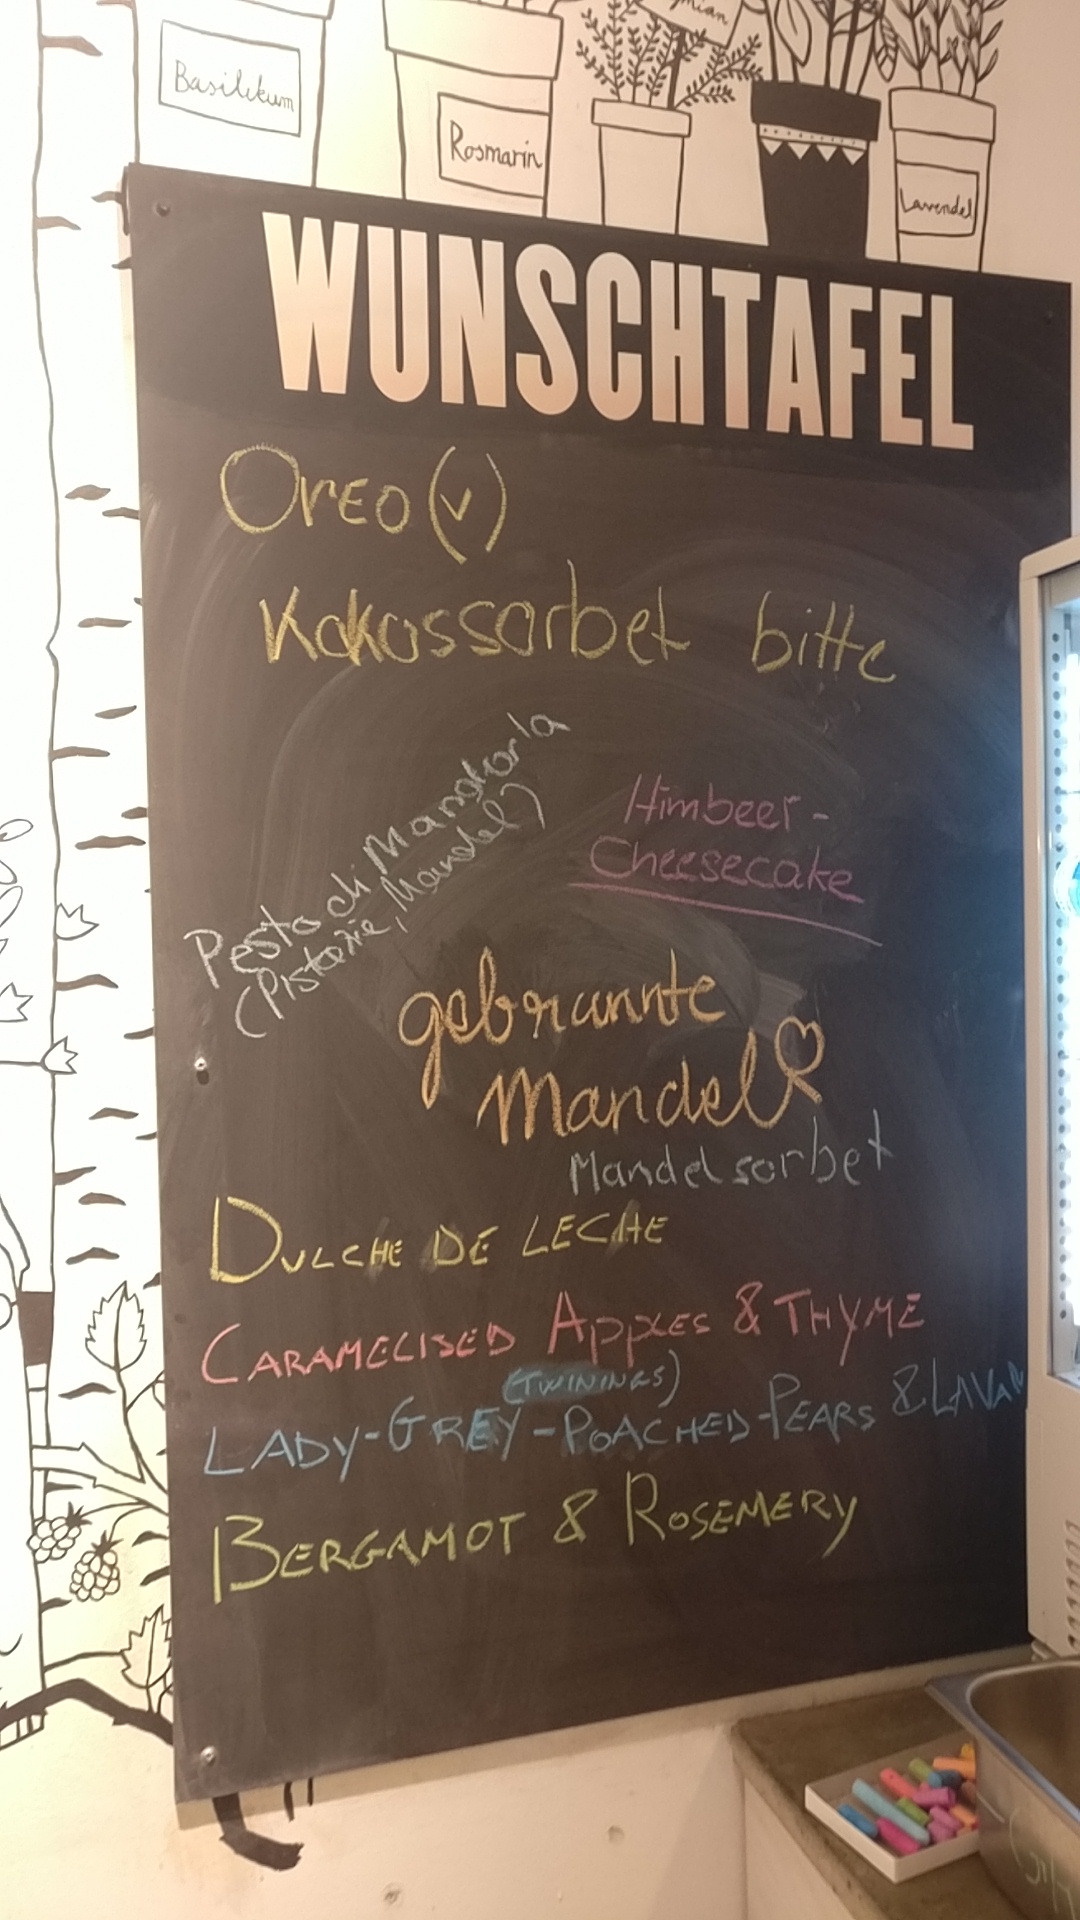 Basilikum
Rosmarin
Lavendel
WUNSCHTAFEL
Oreo (v)
Kokossorbet bitte
Pesto di Mandorla
(Pistazie, Mandel)
Himbeer-
Cheesecake
gebrannte
Mandel
Mandelsorbet
DULCHE DE LECHE
CARAMELISED APPLES & THYME
(TWININGS)
LADY-GREY-POACHED-PEARS &
BERGAMOT & ROSEMERY